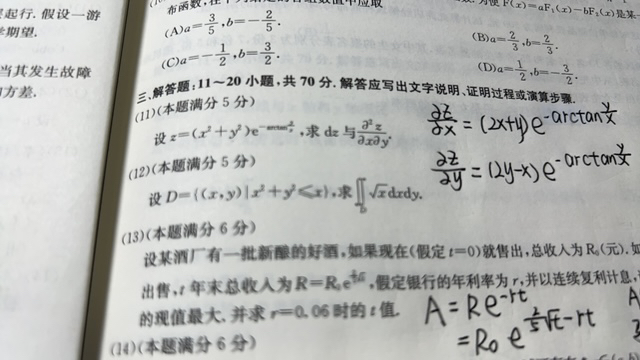 是起行. 假设一游
学期望.
当其发生故障
方差.
布函数,在下列给定的各组数值中应取
为使 F(x)=aF₁(x)-bF₂(x)是某
(A)a=3/5,b=-2/5.
(B)a=2/3,b=2/3.
(C)a=-1/2,b=3/2.
(D)a=1/2,b=-3/2.
三、解答题:11~20 小题,共 70 分.解答应写出文字说明、证明过程或演算步骤.
(11)(本题满分 5 分)
设 z=(x²+y²)e^{-arctan y/x},求 dz 与 ∂²z/∂x∂y.
∂z/∂x = (2x+y)e^{-arctan y/x}
∂z/∂y = (2y-x)e^{-arctan y/x}
(12)(本题满分 5 分)
设 D={(x,y)|x²+y²≤x},求∬_D √x dxdy.
(13)(本题满分 6 分)
设某酒厂有一批新酿的好酒,如果现在(假定 t=0)就售出,总收入为 R₀(元).如
出售,t 年末总收入为 R=R₀e^{2/5 √t},假定银行的年利率为 r,并以连续复利计息,
的现值最大.并求 r=0.06 时的 t 值.
A = Re^{-rt}
= R₀ e^{2/5 √t - rt}
(14)(本题满分 6 分)